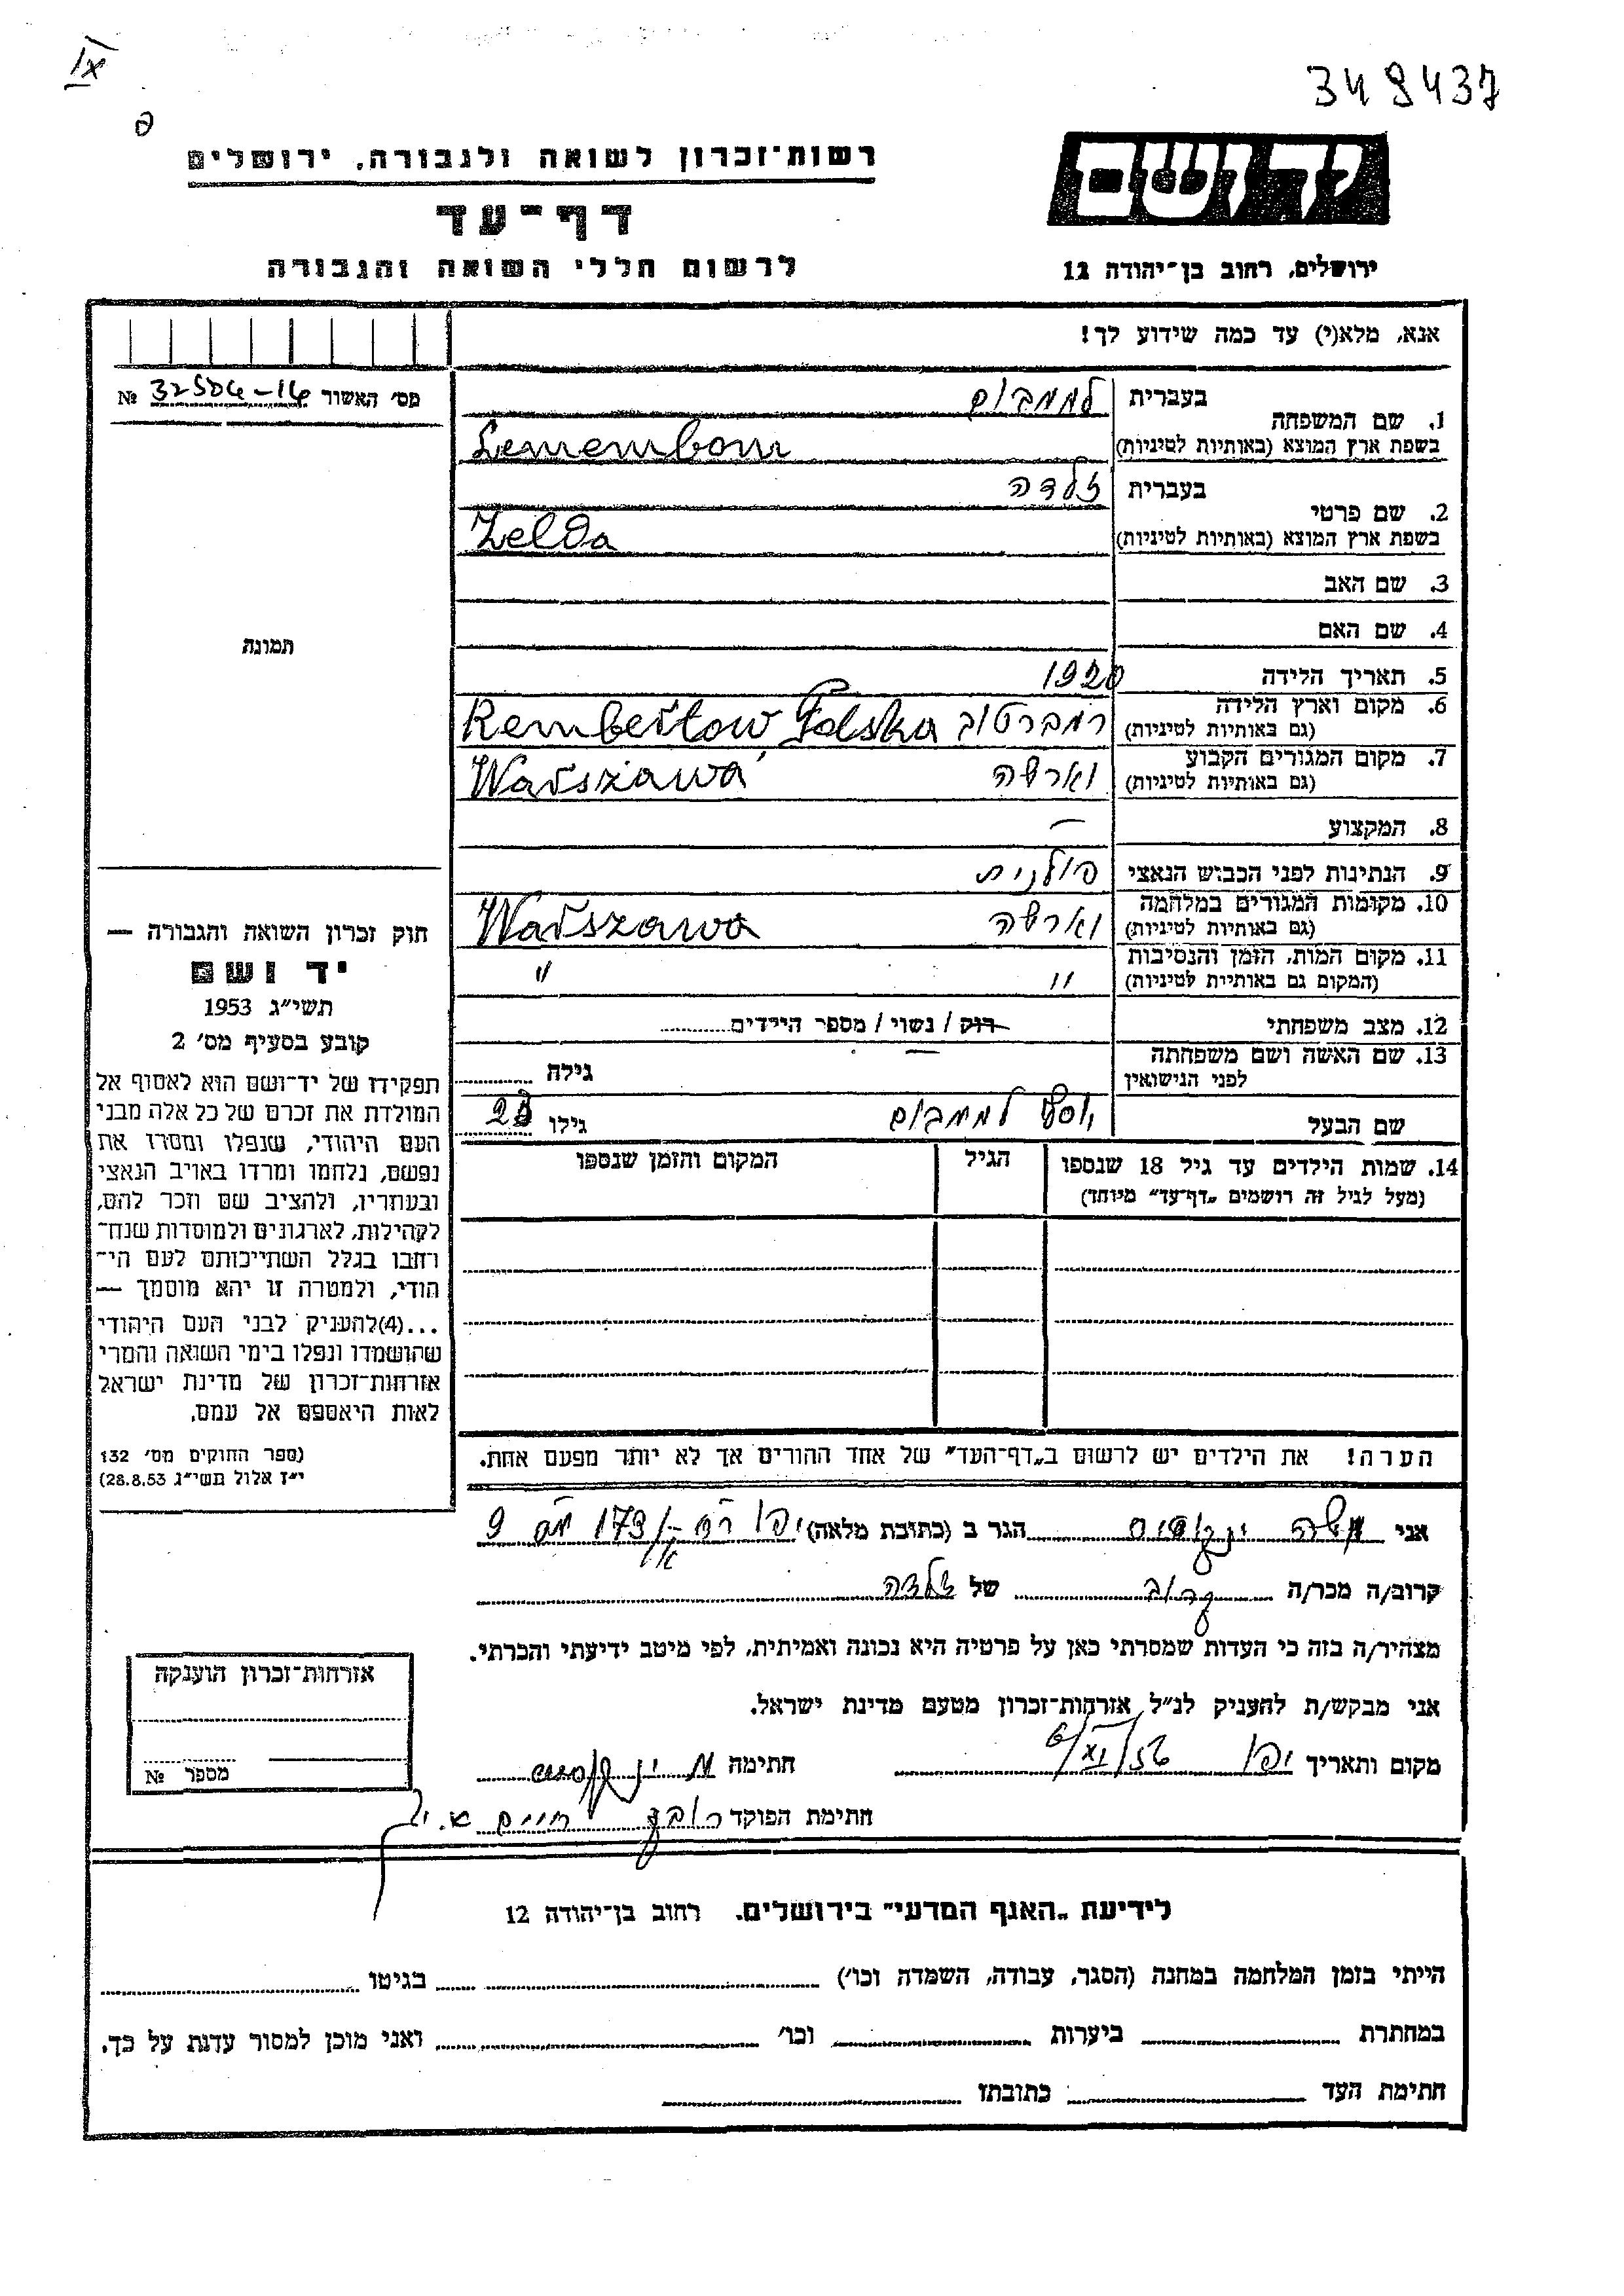 IX
349437
רשות־זכרון לשואה ולגבורה, ירושלים
יד ושם
דף־עד
לרשום חללי השואה והגבורה
ירושלים, רחוב בן־יהודה 12
אנא, מלא(י) עד כמה שידוע לך!
מס׳ האשור № 32506-14
1. שם המשפחה
בעברית לממבוים
בשפת ארץ המוצא (באותיות לטיניות) Lemembom
2. שם פרטי
בעברית זלדה
בשפת ארץ המוצא (באותיות לטיניות) Zelda
3. שם האב
4. שם האם
תמונה
5. תאריך הלידה 1920
6. מקום וארץ הלידה
(גם באותיות לטיניות) רמברטוב Rembertow Polska
7. מקום המגורים הקבוע
(גם באותיות לטיניות) וארשה Warszawa
8. המקצוע —
9. הנתינות לפני הכבוש הנאצי פולנית
10. מקומות המגורים במלחמה
(גם באותיות לטיניות) וארשה Warszawa
11. מקום המות, הזמן והנסיבות
(המקום גם באותיות לטיניות) " "
12. מצב משפחתי רוק / נשוי / מספר הילדים
13. שם האשה ושם משפחתה
לפני הנישואין — גילה
שם הבעל יוסף לממבוים גילו
14. שמות הילדים עד גיל 18 שנספו הגיל המקום והזמן שנספו
(מעל לגיל זה רושמים „דף־עד" מיוחד)
הערה! את הילדים יש לרשום ב„דף־העד" של אחד ההורים אך לא יותר מפעם אחת.
חוק זכרון השואה והגבורה —
יד ושם
תשי״ג 1953
קובע בסעיף מס׳ 2
תפקידו של יד־ושם הוא לאסוף אל
המולדת את זכרם של כל אלה מבני
העם היהודי, שנפלו ומסרו את
נפשם, נלחמו ומרדו באויב הנאצי
ובעוזריו, ולהציב שם וזכר להם,
לקהילות, לארגונים ולמוסדות שנח־
רחבו בגלל השתייכותם לעם הי־
הודי, ולמטרה זו יהא מוסמך —
...(4)להעניק לבני העם היהודי
שהושמדו ונפלו בימי השואה והמרי
אזרחות־זכרון של מדינת ישראל
לאות היאספם אל עמם.
(ספר החוקים מס׳ 132
י״ז אלול תשי״ג 28.8.53)
אני משה הגר ב (כתובת מלאה) יפו 173 9
קרוב/ה מכר/ה קרוב של זלדה
מצהיר/ה בזה כי העדות שמסרתי כאן על פרטיה היא נכונה ואמיתית, לפי מיטב ידיעתי והכרתי.
אני מבקש/ת להעניק לנ״ל אזרחות־זכרון מטעם מדינת ישראל.
מקום ותאריך יפו 6/XI/56 חתימה
חתימת הפוקד חיים
אזרחות־זכרון הוענקה
מספר №
לידיעת „האגף המדעי" בירושלים. רחוב בן־יהודה 12
הייתי בזמן המלחמה במחנה (הסגר, עבודה, השמדה וכו׳) בגיטו
במחתרת ביערות וכו׳ ואני מוכן למסור עדות על כך.
חתימת העד כתובתו